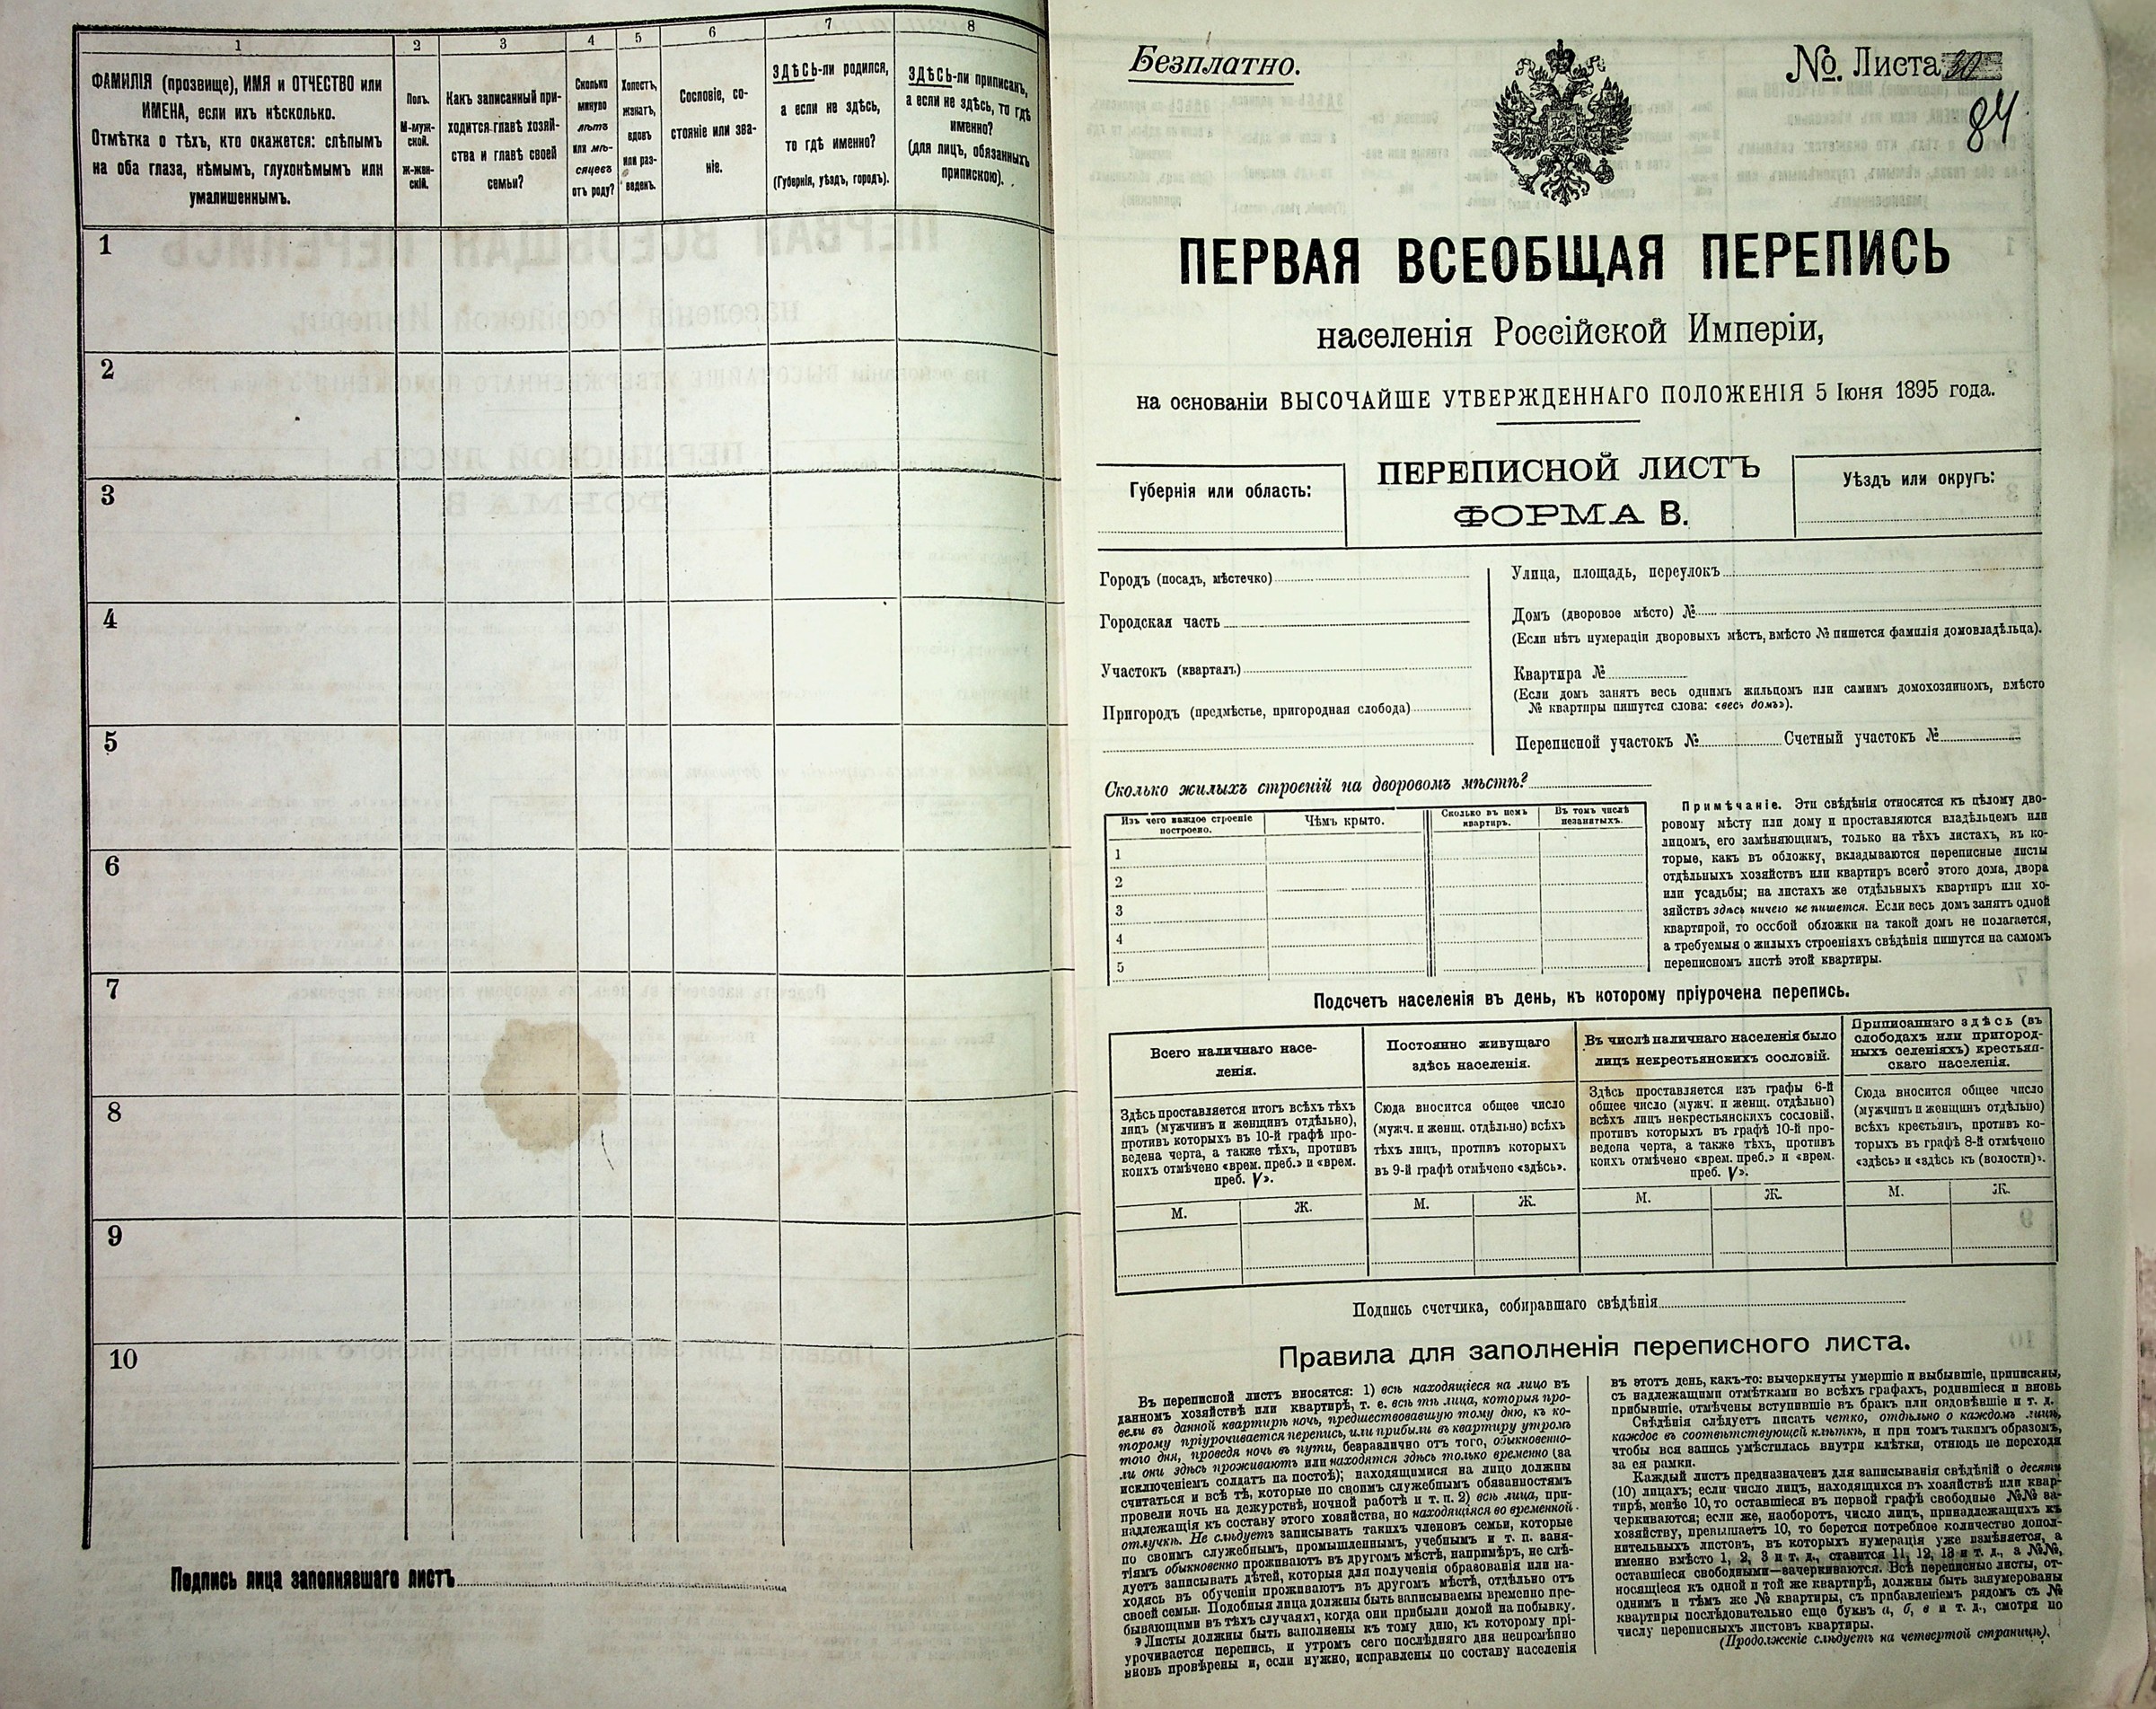 1
2
3
4
5
6
7
8
ФАМИЛІЯ (прозвище), ИМЯ и ОТЧЕСТВО или
ИМЕНА, если ихъ нѣсколько.
Отмѣтка о тѣхъ, кто окажется: слѣпымъ
на оба глаза, нѣмымъ, глухонѣмымъ или
умалишеннымъ.
Полъ.
М-муж-
ской.
Ж-жен-
скій.
Какъ записанный при-
ходится главѣ хозяй-
ства и главѣ своей
семьи?
Сколько
минуло
лѣтъ
или мѣ-
сяцевъ
отъ роду?
Холостъ,
женатъ,
вдовъ
или раз-
веденъ.
Сословіе, со-
стояніе или зва-
ніе.
ЗДѢСЬ-ли родился,
а если не здѣсь,
то гдѣ именно?
(Губернія, уѣздъ, городъ).
ЗДѢСЬ-ли приписанъ,
а если не здѣсь, то гдѣ
именно?
(для лицъ, обязанныхъ
припискою).
1
2
3
4
5
6
7
8
9
10
Подпись лица заполнявшаго листъ
Безплатно.
№ Листа
84
ПЕРВАЯ ВСЕОБЩАЯ ПЕРЕПИСЬ
населенія Россійской Имперіи,
на основаніи ВЫСОЧАЙШЕ УТВЕРЖДЕННАГО ПОЛОЖЕНІЯ 5 Іюня 1895 года.
Губернія или область:
ПЕРЕПИСНОЙ ЛИСТЪ
ФОРМА В.
Уѣздъ или округъ:
Городъ (посадъ, мѣстечко)
Городская часть
Участокъ (кварталъ)
Пригородъ (предмѣстье, пригородная слобода)
Улица, площадь, переулокъ
Домъ (дворовое мѣсто) №
(Если нѣтъ нумераціи дворовыхъ мѣстъ, вмѣсто № пишется фамилія домовладѣльца).
Квартира №
(Если домъ занятъ весь однимъ жильцомъ или самимъ домохозяиномъ, вмѣсто
№ квартиры пишутся слова: «весь домъ»).
Переписной участокъ № Счетный участокъ №
Сколько жилыхъ строеній на дворовомъ мѣстѣ?
Изъ чего каждое строеніе
построено.
Чѣмъ крыто.
Сколько въ немъ
квартиръ.
Въ томъ числѣ
незанятыхъ.
1
2
3
4
5
Примѣчаніе. Эти свѣдѣнія относятся къ цѣлому дво-
ровому мѣсту или дому и проставляются владѣльцемъ или
лицомъ, его замѣняющимъ, только на тѣхъ листахъ, въ ко-
торые, какъ въ обложку, вкладываются переписные листы
отдѣльныхъ хозяйствъ или квартиръ всего этого дома, двора
или усадьбы; на листахъ же отдѣльныхъ квартиръ или хо-
зяйствъ здѣсь ничего не пишется. Если весь домъ занятъ одной
квартирой, то особой обложки на такой домъ не полагается,
а требуемыя о жилыхъ строеніяхъ свѣдѣнія пишутся на самомъ
переписномъ листѣ этой квартиры.
Подсчетъ населенія въ день, къ которому пріурочена перепись.
Всего наличнаго насе-
ленія.
Здѣсь проставляется итогъ всѣхъ тѣхъ
лицъ (мужчинъ и женщинъ отдѣльно),
противъ которыхъ въ 10-й графѣ про-
ведена черта, а также тѣхъ, противъ
коихъ отмѣчено «врем. преб.» и «врем.
преб. V».
Постоянно живущаго
здѣсь населенія.
Сюда вносится общее число
(мужч. и женщ. отдѣльно) всѣхъ
тѣхъ лицъ, противъ которыхъ
въ 9-й графѣ отмѣчено «здѣсь».
Въ числѣ наличнаго населенія было
лицъ некрестьянскихъ сословій.
Здѣсь проставляется изъ графы 6-й
общее число (мужч. и женщ. отдѣльно)
всѣхъ лицъ некрестьянскихъ сословій,
противъ которыхъ въ графѣ 10-й про-
ведена черта, а также тѣхъ, противъ
коихъ отмѣчено «врем. преб.» и «врем.
преб. V».
Приписаннаго здѣсь (въ
слободахъ или пригород-
ныхъ селеніяхъ) крестьян-
скаго населенія.
Сюда вносится общее число
(мужчинъ и женщинъ отдѣльно)
всѣхъ крестьянъ, противъ ко-
торыхъ въ графѣ 8-й отмѣчено
«здѣсь» и «здѣсь къ (волости)».
М. Ж. М. Ж. М. Ж. М. Ж.
Подпись счетчика, собиравшаго свѣдѣнія
Правила для заполненія переписного листа.
Въ переписной листъ вносятся: 1) всѣ находящіеся на лицо въ
данномъ хозяйствѣ или квартирѣ, т. е. всѣ тѣ лица, которыя про-
вели въ данной квартирѣ ночь, предшествовавшую тому дню, къ ко-
торому пріурочивается перепись, или прибыли въ квартиру утромъ
того дня, проведя ночь въ пути, безразлично отъ того, обыкновенно-
ли они здѣсь проживаютъ или находятся здѣсь только временно (за
исключеніемъ солдатъ на постоѣ); находящимися на лицо должны
считаться и всѣ тѣ, которые по своимъ служебнымъ обязанностямъ
провели ночь на дежурствѣ, ночной работѣ и т. п. 2) всѣ лица, при-
надлежащія къ составу этого хозяйства, но находящіяся во временной
отлучкѣ. Не слѣдуетъ записывать такихъ членовъ семьи, которые
по своимъ служебнымъ, промышленнымъ, учебнымъ и т. п. заня-
тіямъ обыкновенно проживаютъ въ другомъ мѣстѣ, напримѣръ, не слѣ-
дуетъ записывать дѣтей, которыя для полученія образованія или на-
ходясь въ обученіи проживаютъ въ другомъ мѣстѣ, отдѣльно отъ
своей семьи. Подобныя лица должны быть записываемы временно пре-
бывающими въ тѣхъ случаяхъ, когда они прибыли домой на побывку.
Листы должны быть заполнены къ тому дню, къ которому прі-
урочивается перепись, и утромъ сего послѣдняго дня непремѣнно
вновь провѣрены и, если нужно, исправлены по составу населенія
въ этотъ день, какъ-то: вычеркнуты умершіе и выбывшіе, приписаны,
съ надлежащими отмѣтками во всѣхъ графахъ, родившіеся и вновь
прибывшіе, отмѣчены вступившіе въ бракъ или овдовѣвшіе и т. д.
Свѣдѣнія слѣдуетъ писать четко, отдѣльно о каждомъ лицѣ,
каждое въ соотвѣтствующей клѣткѣ, и при томъ такимъ образомъ,
чтобы вся запись умѣстилась внутри клѣтки, отнюдь не переходя
за ея рамки.
Каждый листъ предназначенъ для записыванія свѣдѣній о десяти
(10) лицахъ; если число лицъ, находящихся въ хозяйствѣ или квар-
тирѣ, менѣе 10, то оставшіеся въ первой графѣ свободные №№ за-
черкиваются; если же, наоборотъ, число лицъ, принадлежащихъ къ
хозяйству, превышаетъ 10, то берется потребное количество допол-
нительныхъ листовъ, въ которыхъ нумерація уже измѣняется, а
именно вмѣсто 1, 2, 3 и т. д., ставится 11, 12, 13 и т. д., а №№,
оставшіеся свободными—зачеркиваются. Всѣ переписные листы, от-
носящіеся къ одной и той же квартирѣ, должны быть занумерованы
однимъ и тѣмъ же № квартиры, съ прибавленіемъ рядомъ съ №
квартиры послѣдовательно еще буквъ а, б, в и т. д., смотря по
числу переписныхъ листовъ квартиры.
(Продолженіе слѣдуетъ на четвертой страницѣ).